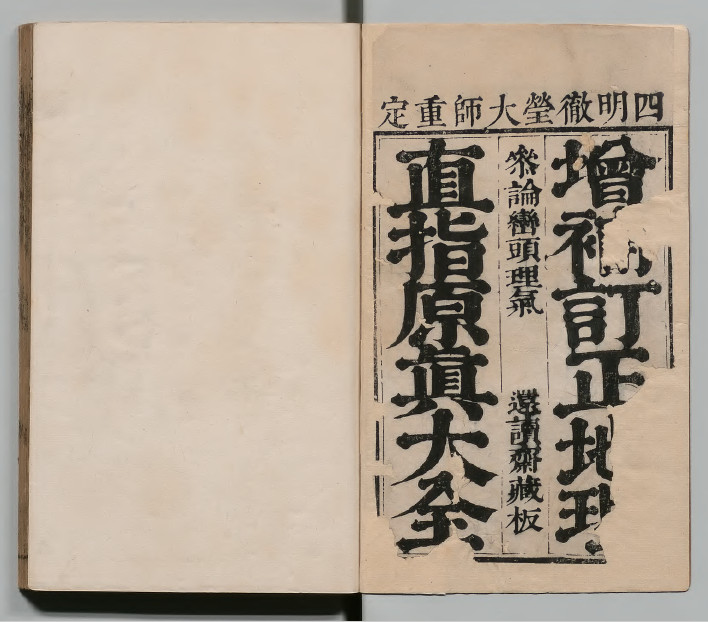 四明徹瑩大師重定
增補訂正地理
叅論巒頭理氣
還讀齋藏板
直指原眞大全